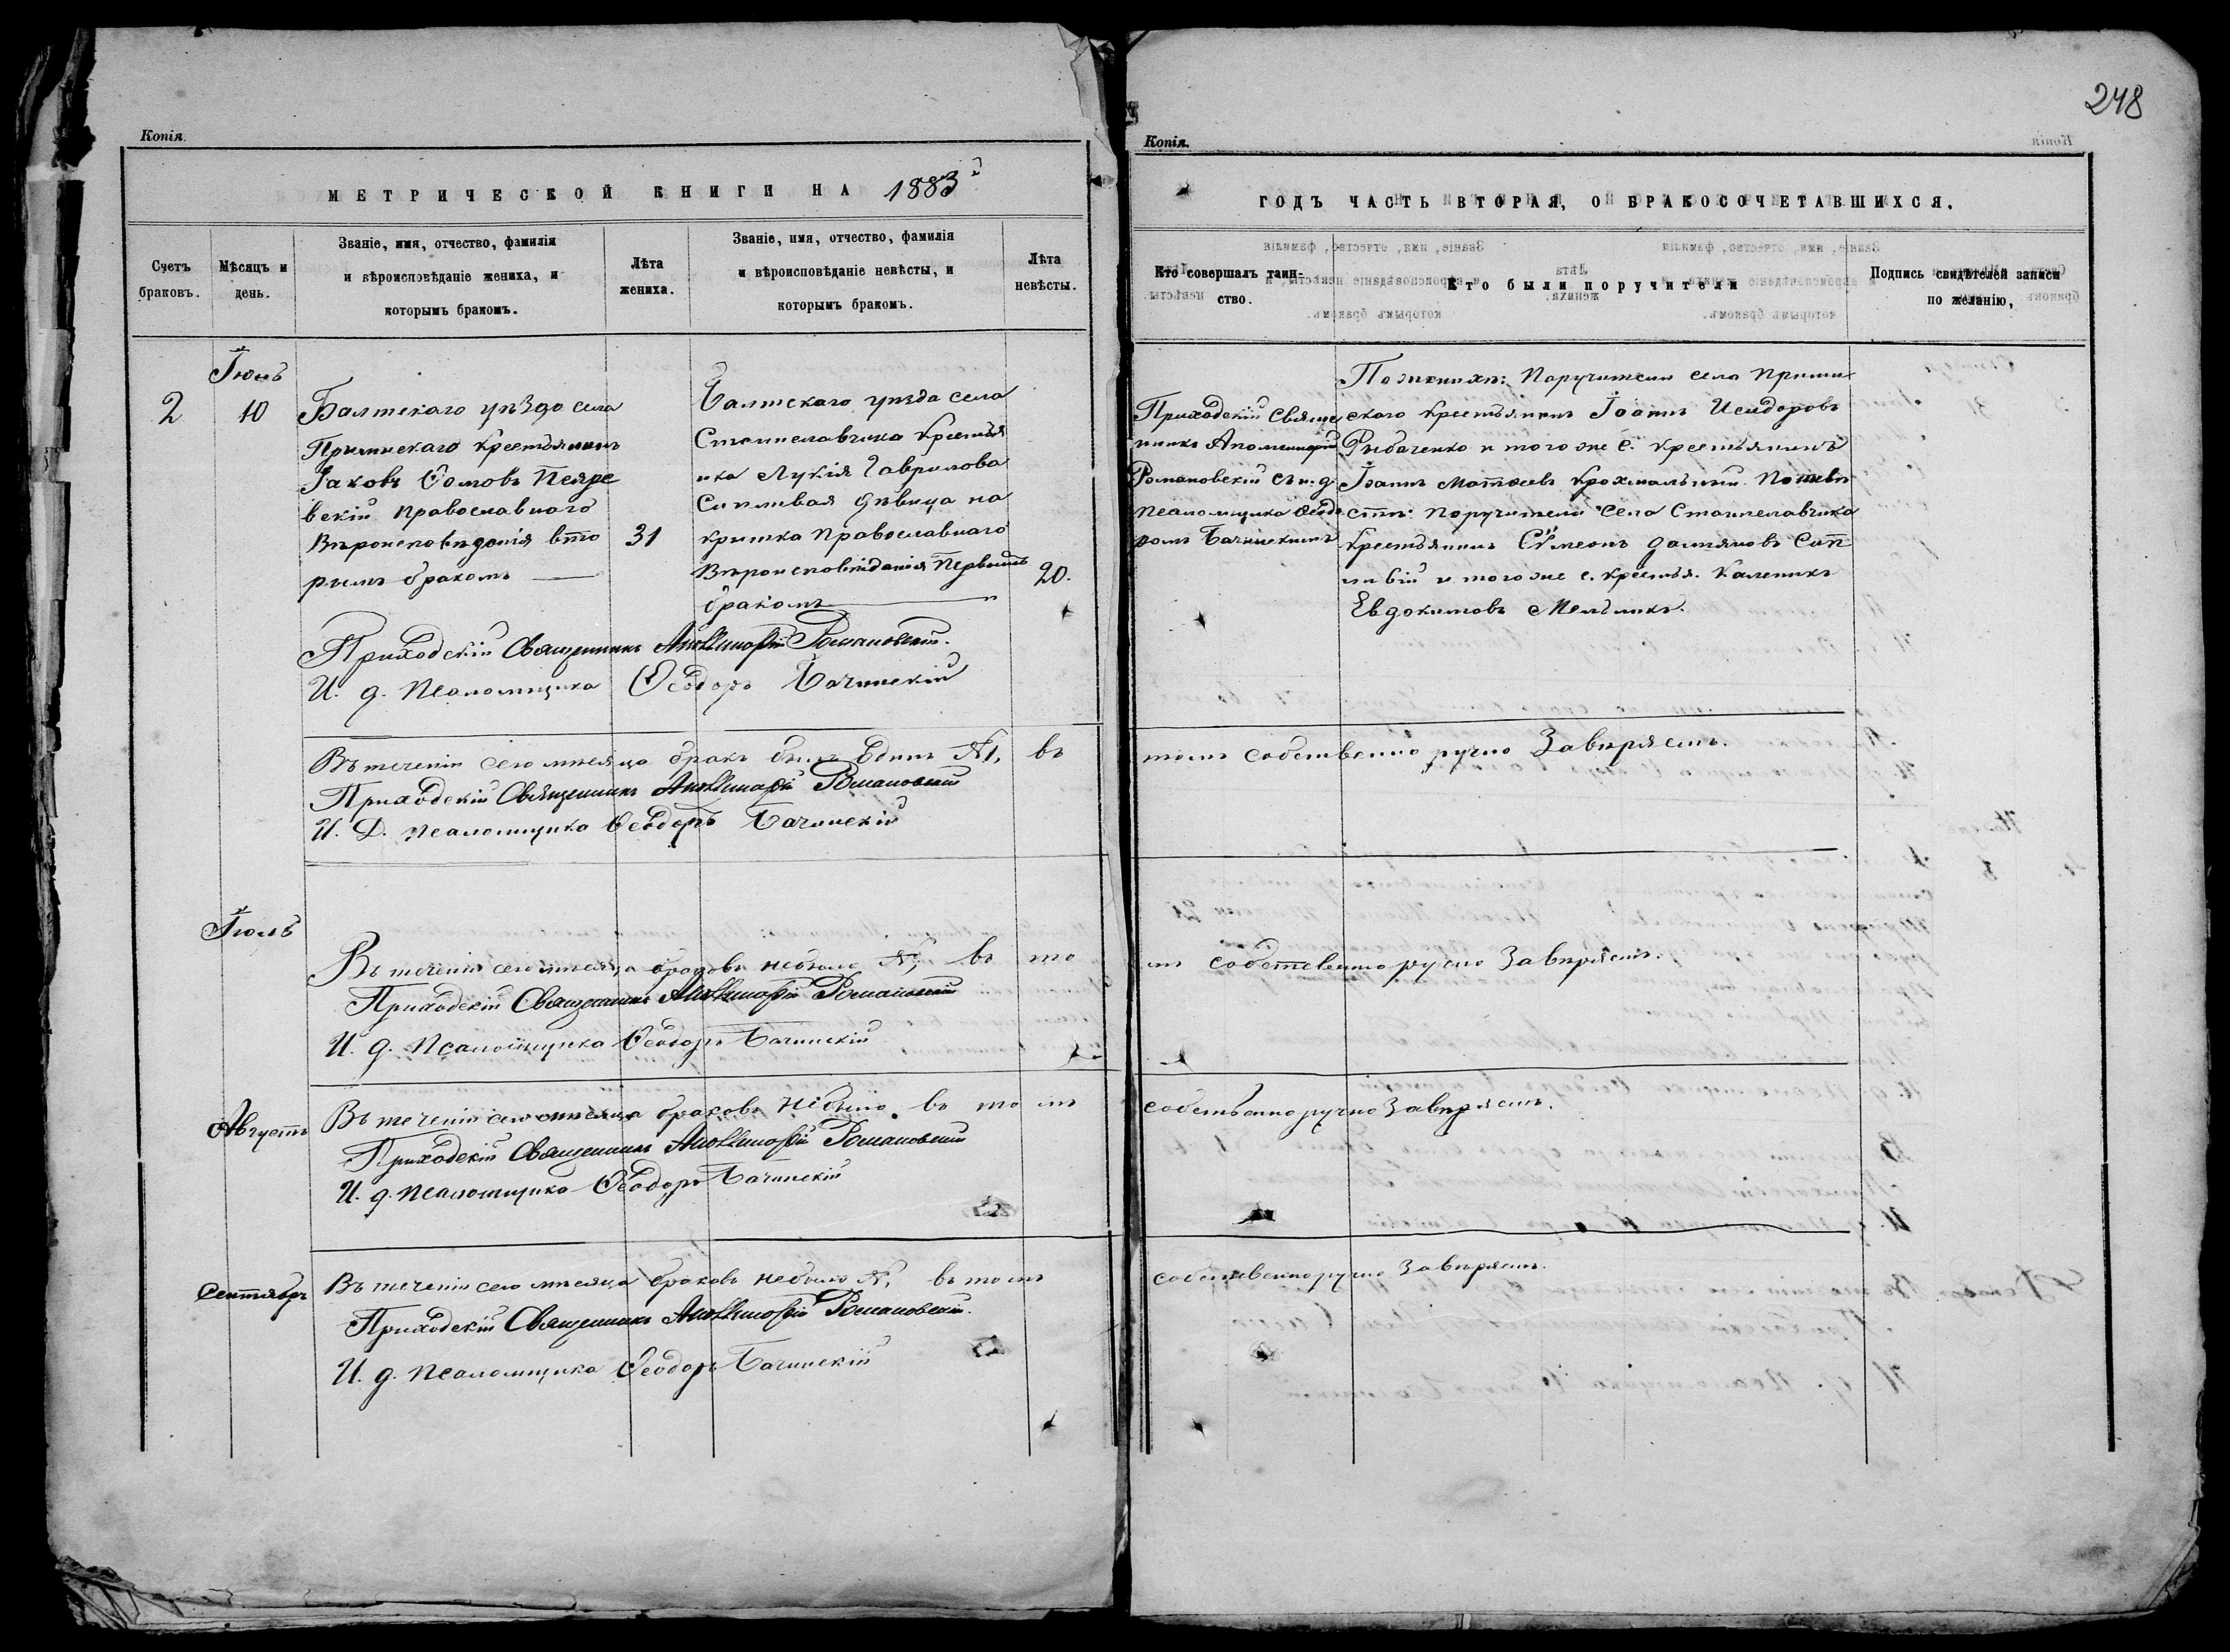 248
Копія.
МЕТРИЧЕСКОЙ КНИГИ НА 1883й
Счетъ браковъ.
Мѣсяцъ и день.
Званіе, имя, отчество, фамилія
и вѣроисповѣданіе жениха, и
которымъ бракомъ.
Лѣта жениха.
Званіе, имя, отчество, фамилія
и вѣроисповѣданіе невѣсты, и
которымъ бракомъ.
Лѣта невѣсты.
Іюнь
2
10
Балтскаго уѣзда села
крестьянинъ
Іаковъ
вскій православнаго
вѣроисповѣданія вто
рымъ бракомъ
31
Балтскаго уѣзда села
Станиславчика крестья
нка Лукія Гаврилова
дѣвица на
кришка православнаго
вѣроисповѣданія первымъ
бракомъ
20.
Приходскій Священникъ Аполлинарій Романовскій.
И. д. псаломщика Ѳеодоръ Бачинскій
Въ теченіи сего мѣсяца бракъ былъ одинъ №1, въ
Приходскій Священникъ Аполлинарій Романовскій
И. Д. псаломщика Ѳеодоръ Бачинскій
Іюль
Въ теченіи сего мѣсяца браковъ небыло №, въ то
Приходскій Священникъ Аполлинарій Романовскій
И. д. псаломщика Ѳеодоръ Бачинскій
Августъ
Въ теченіи сего мѣсяца браковъ небыло. въ томъ
Приходскій Священникъ Аполлинарій Романовскій
И. д. псаломщика Ѳеодоръ Бачинскій
Сентябрь
Въ теченіи сего мѣсяца браковъ небыло №, въ томъ
Приходскій Священникъ Аполлинарій Романовскій.
И. д. псаломщика Ѳеодоръ Бачинскій
Копія.
ГОДЪ ЧАСТЬ ВТОРАЯ, О БРАКОСОЧЕТАВШИХСЯ.
Кто совершалъ таин-
ство.
Кто были поручители
Подпись свидѣтелей записи
по желанію,
Приходскій Свяще
нникъ Аполлинарій
Романовскій съ и. д.
псаломщика Ѳеодо
ромъ Бачинскимъ
По женихѣ: Поручители села
скаго крестьянинъ Іоаннъ Исидоровъ
Рыбаченко и того же с. крестьянинъ
Іоаннъ Матѳеевъ Крохмальный По невѣ
стѣ: поручители села Станиславчика
крестьянинъ Сѵмеонъ Даміановъ
и того же с. крестья. Каленикъ
Евдокимовъ Мельникъ.
томъ собственно ручно Завѣряемъ.
мъ собственноручно Завѣряемъ.
собственноручно Завѣряемъ.
собственноручно Завѣряемъ.